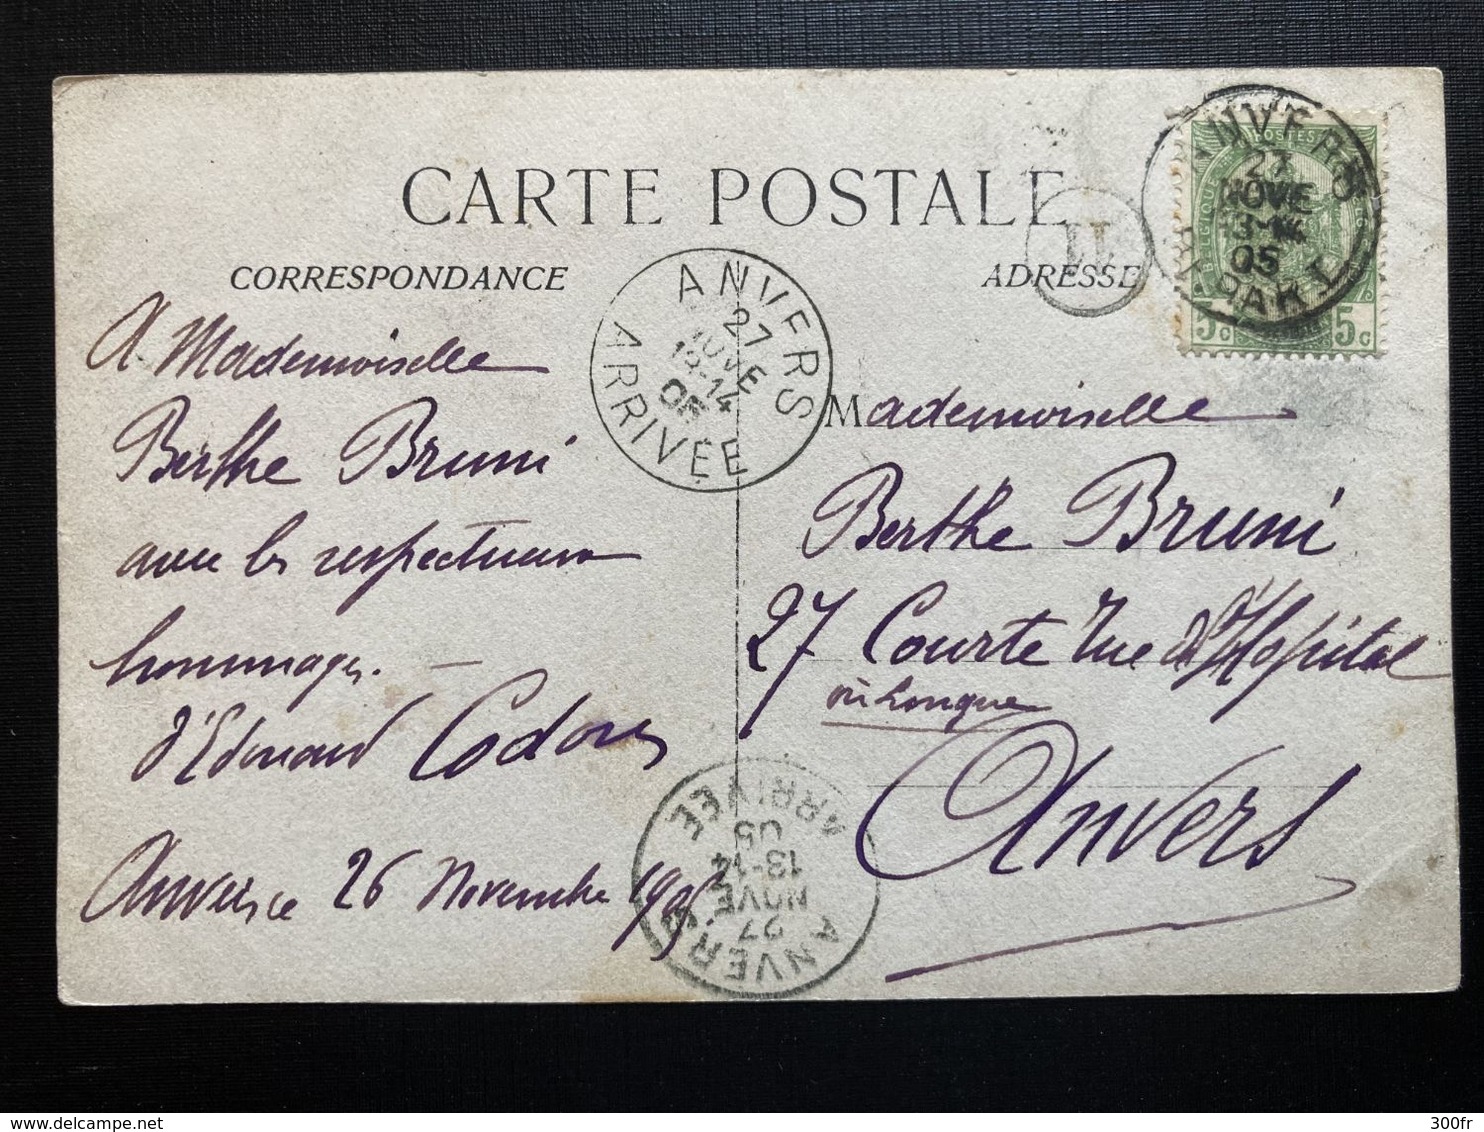 CARTE POSTALE
CORRESPONDANCE
ADRESSE
A Mademoiselle
Berthe Bruni
avec les respectueux
hommages.
d'Edouard
Anvers ce 26 Novembre 1905
Mademoiselle
Berthe Bruni
27 Courte rue d'Hôpital
ou Longue
Anvers
ANVERS
27
NOVE
13-14
05
ARRIVÉE
ANVERS
27
NOVE
13-14
05
ARRIVÉE
ANVERS
NOVE
05
DÉPART
11
POSTES
BELGIQUE
5c 5c
300fr